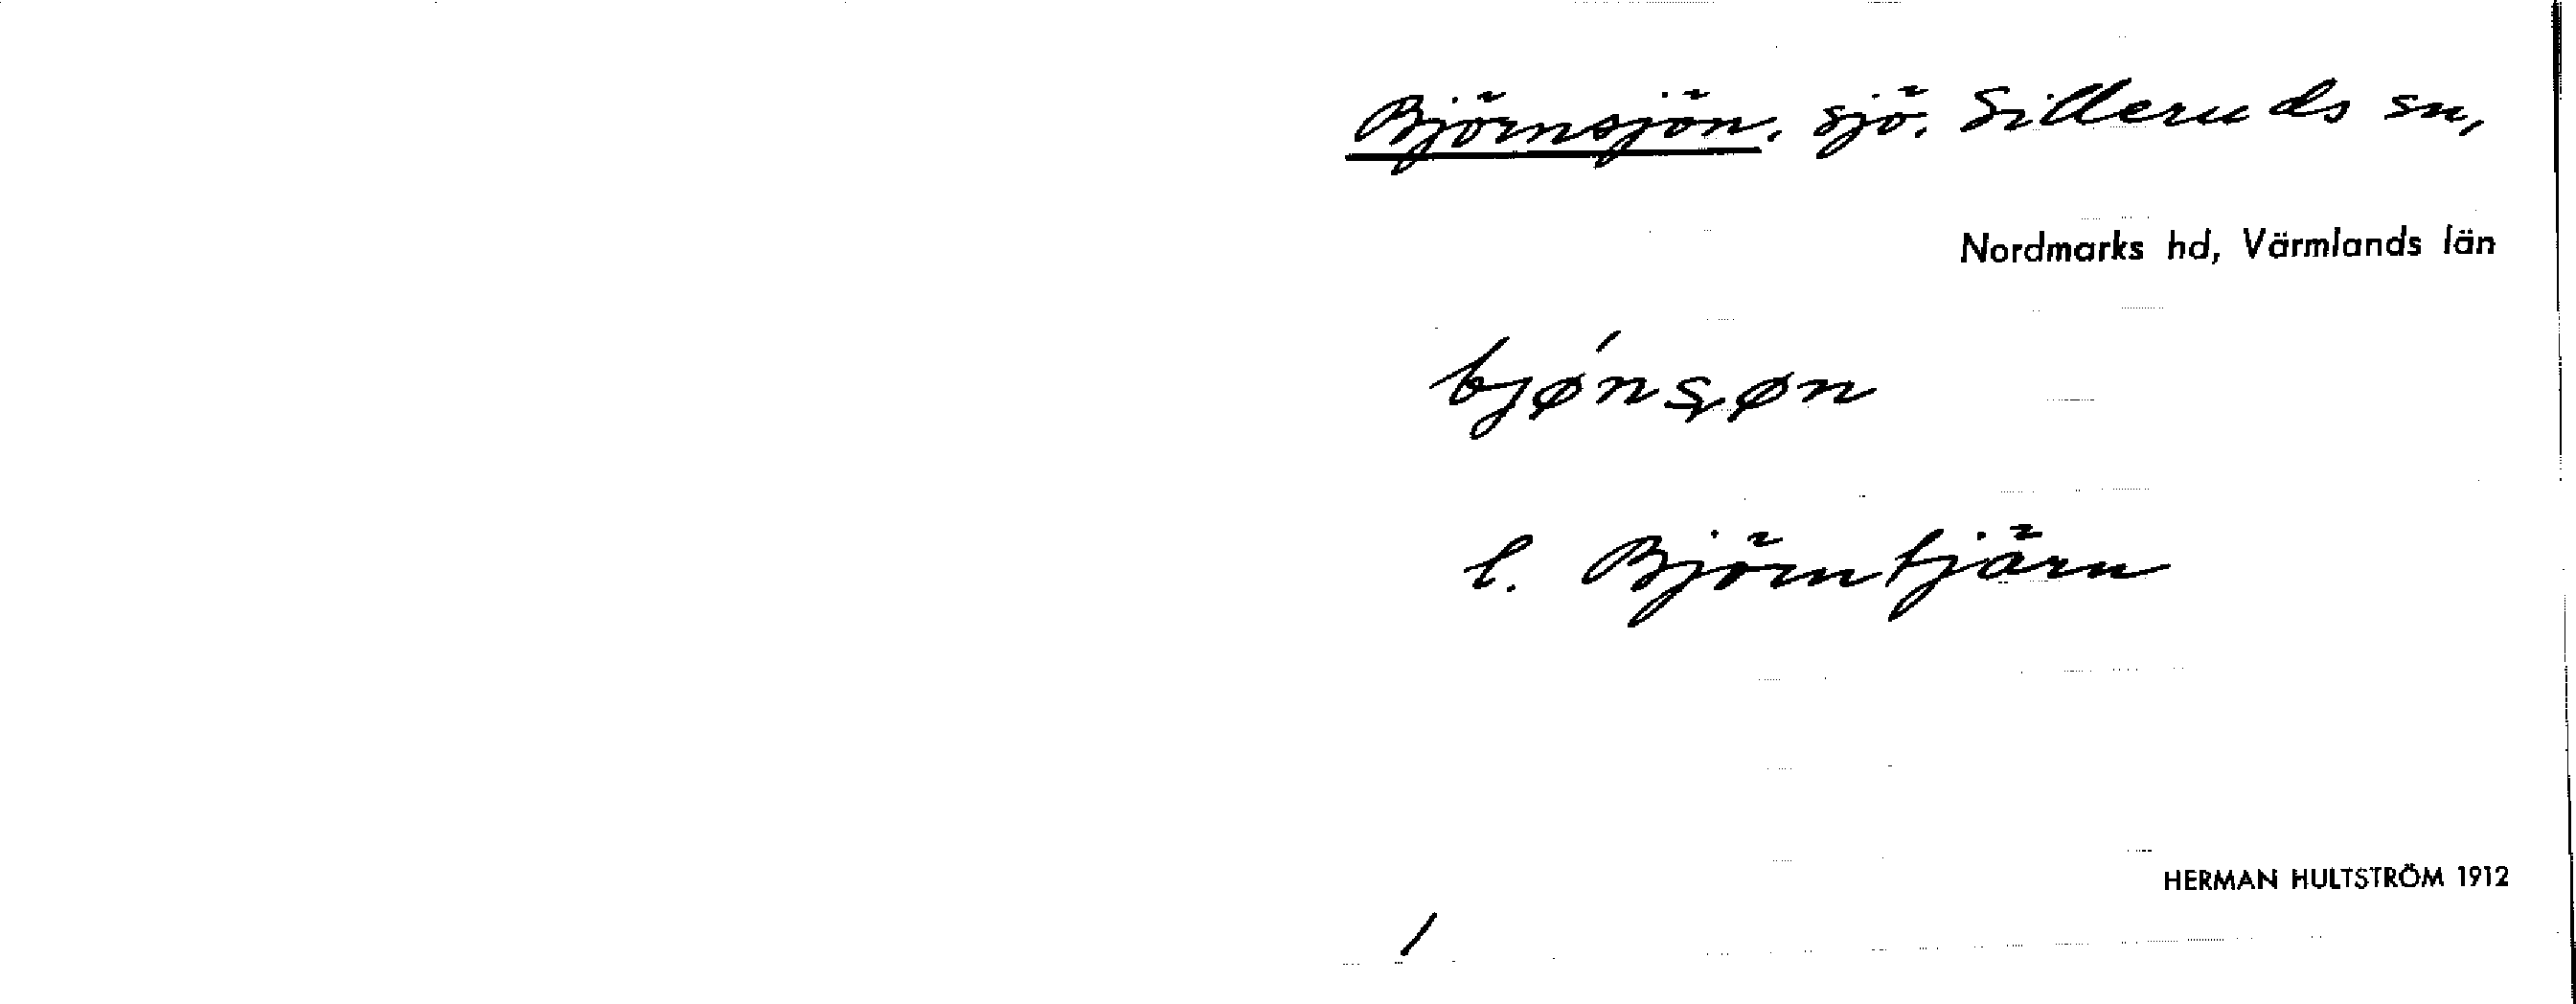 Björnsjön, sjö, Silleruds sn,
Nordmarks hd, Värmlands län
bjǿnʂøn
l. Björntjärn
HERMAN HULTSTRÖM 1912
/